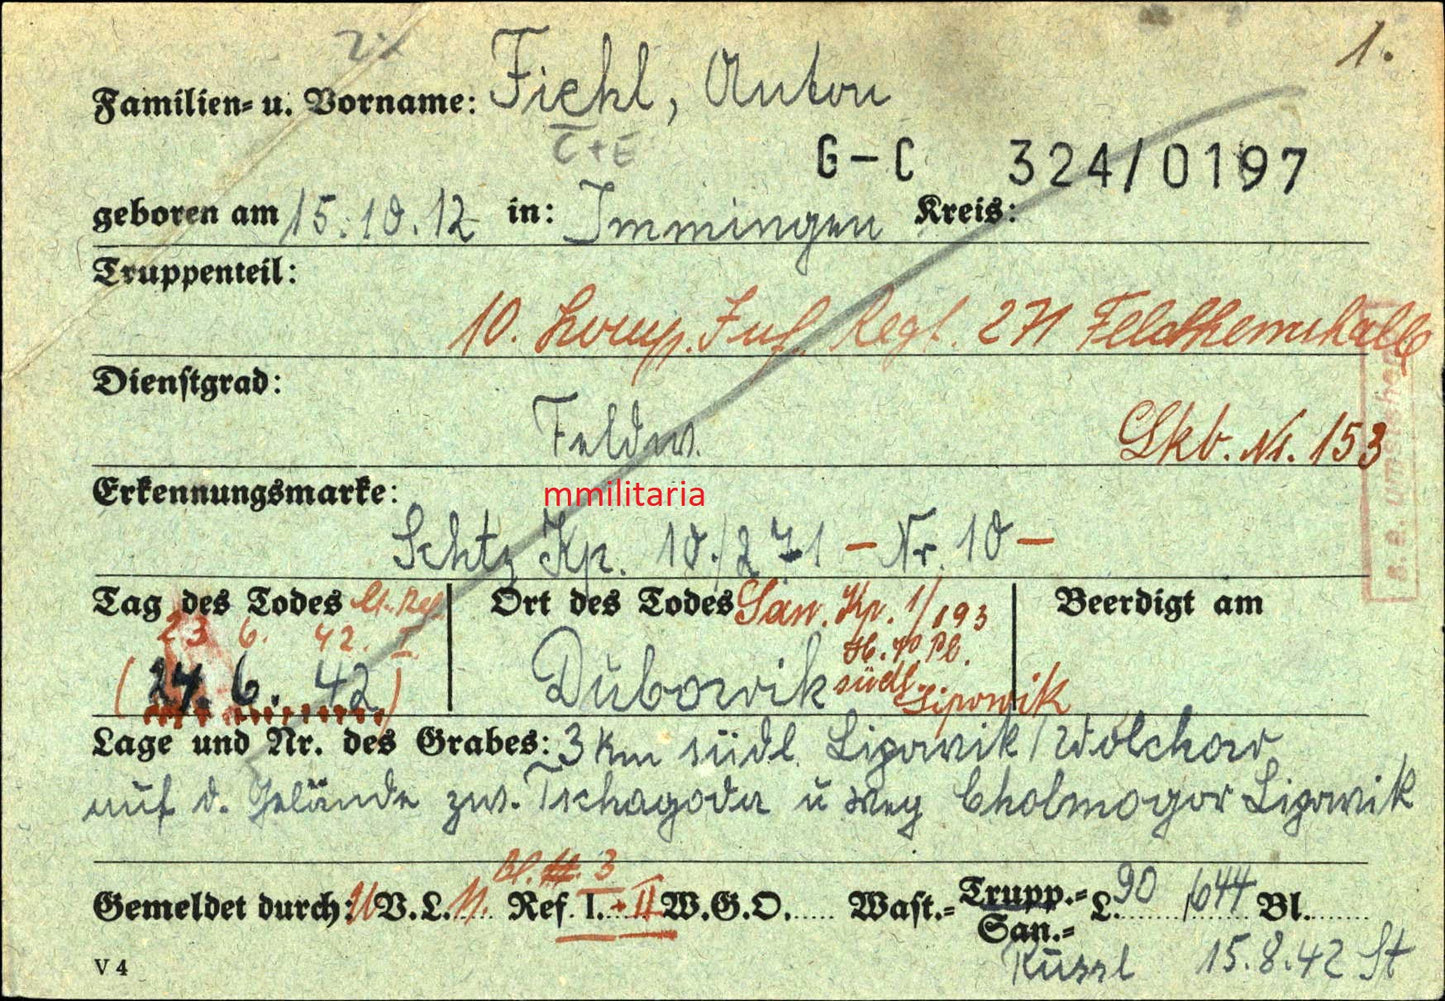 1.
Familien- u. Vorname: Fichl, Anton
C + E
G-C 324/0197
geboren am 15.10.12 in: Immingen Kreis:
Truppenteil:
10. Komp. Inf. Regt. 271 Feldherrnhalle
Dienstgrad:
Feldw.
Lkb. Nr. 153
Erkennungsmarke:
mmilitaria
Schtz Kp. 10./271 - Nr. 10 -
Tag des Todes Ort des Todes San. Kp. 1/193 Beerdigt am
23 6. 42. I.
H. V. Pl.
(24. 6. 42) Dubowik südl. Lipowik
Lage und Nr. des Grabes: 3 km südl. Lipowik / Wolchow
auf d. Gelände zw. Tschagoda u Weg Cholmogor Lipowik
3
Gemeldet durch: V.L. Ref. I. + II W.G.O. Wast.- Trupp.- San.- L. 90 /644 Bl.
V 4
15.8.42 St